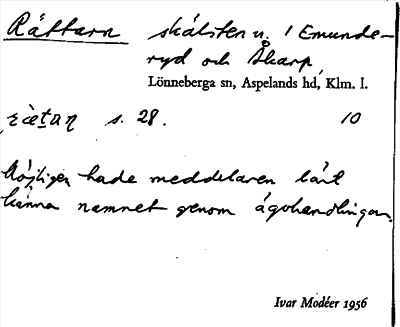 Rättarn skälsten n. i Emunde-
ryd och Åkarp,
Lönneberga sn, Aspelands hd, Klm. l.
s. 28. 10
Möjligen hade meddelaren lärt
känna namnet genom ägohandlingar.
Ivar Modéer 1956